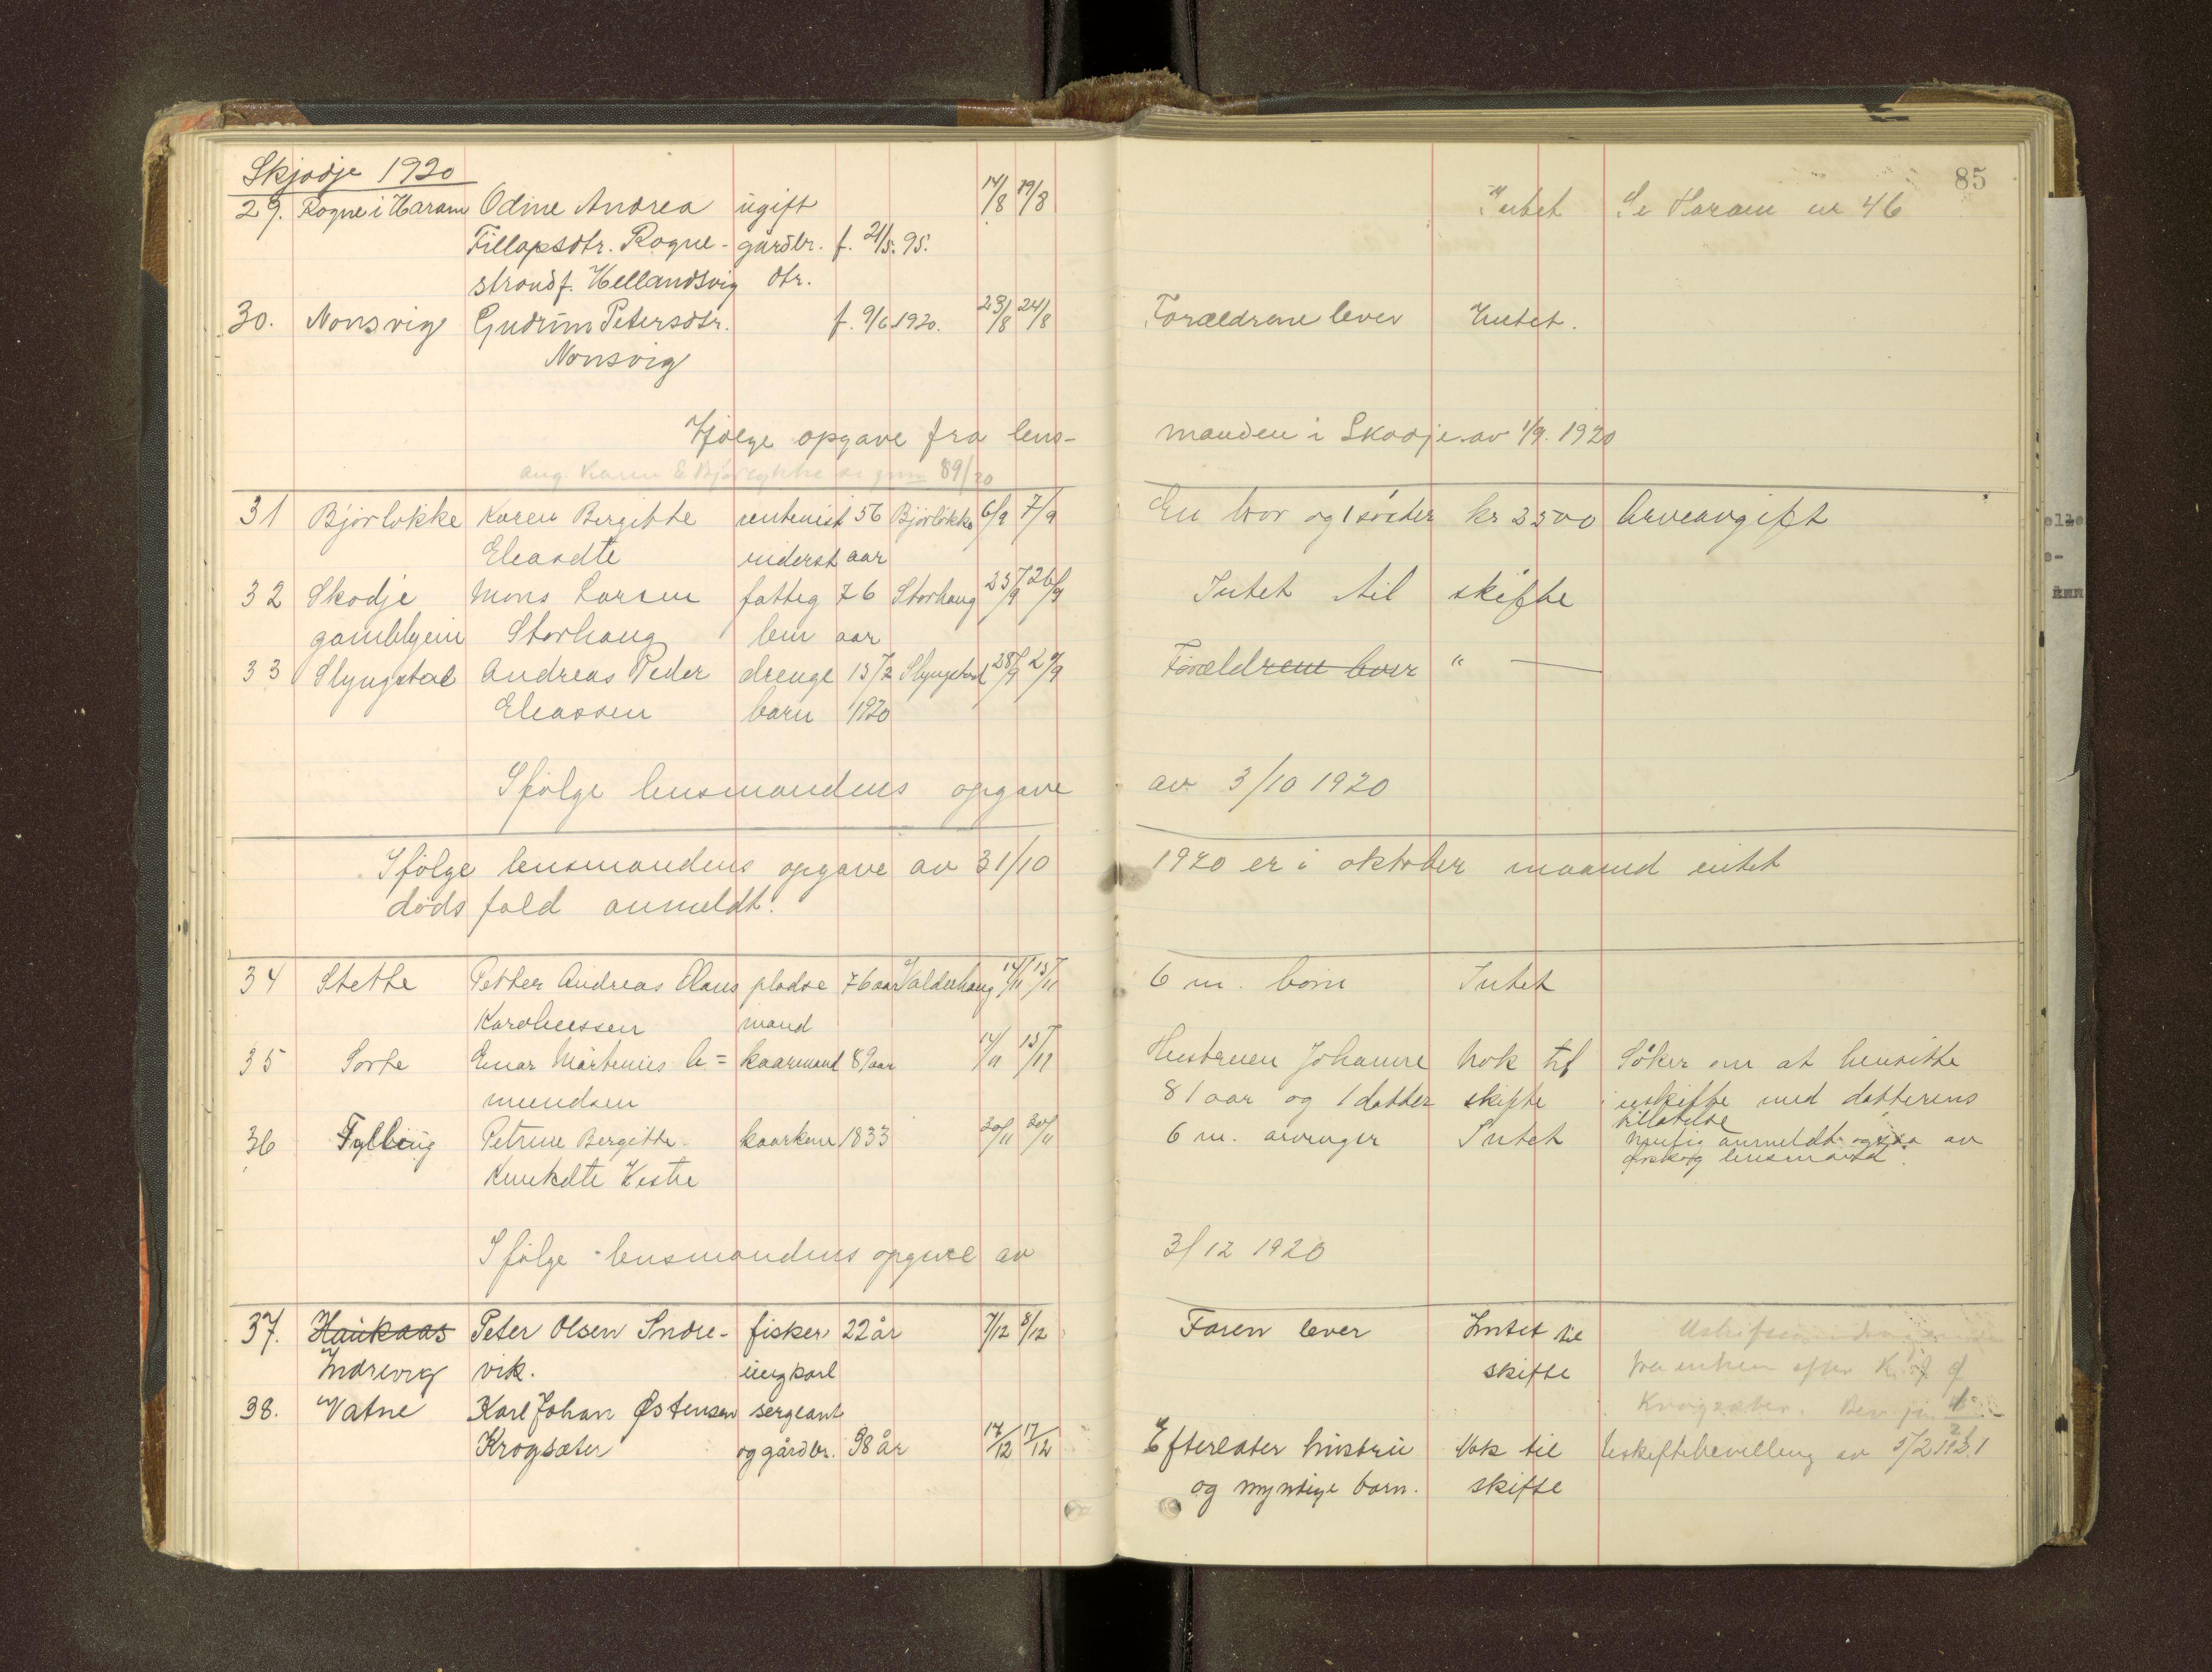 Skjodje 1920
85
29. Rogne i Haram Odine Andrea ugift 14/8 19/8 Intet Se Haram nr 46
Fillapsdtr. Rogne- gårdbr. f. 21/5. 95.
strand f. Hellandsvig dtr.
30. Nonsvig Gudrun Petersdtr. f. 9/6 1920. 23/8 24/8 Forældrene lever Intet.
Nonsvig
Ifølge opgave fra lens- manden i Skodje av 1/9. 1920
ang. Karen E Bjørlykke se 89/20
31 Bjørlokke Karen Bergitte rentenist 56 Bjørlokke 6/9 7/9 En bror og 1 søster kr 3500 Arveavgift
Eleasdte inderst aar
32 Skodje Mons Larsen fattig 76 Storhaug 25/9 26/9 Intet til skifte
gamlehjem Storhaug lem aar
33 Slyngstad Andreas Peder drenge 15/2 Slyngstad 28/9 29/9 Forældrene lever " —
Eleassen barn 1920
Ifølge lensmandens opgave av 3/10 1920
Ifølge lensmandens opgave av 31/10 1920 er i oktober maaned intet
dødsfald anmeldt.
34 Stette Petter Andreas Olaus pladse 76 aar Valderhaug 14/11 15/11 6 m. børn Intet
Karoliussen mand
35 Sorte Einar Mårtenius A= kaarmand 89 aar 14/11 15/11 Hustruen Johanne nok til Søker om at hensitte
mundsen 81 aar og 1 datter skifte i uskifte med datterens
tillatelse
36 Fylling Petrine Bergitte kaarkone 1833 20/11 20/11 6 m. arvinger Intet anmeldt ogsaa av
Ørskog lensmand.
Knutsdtr Vestre
Ifølge lensmandens opgave av 3/12 1920
37. Haukaas Peter Olsen Indre- fisker 22 år 7/12 8/12 Faren lever Intet til
Indrevig vik. ungkarl skifte
38. Vatne Karl Johan Østensen sergeant
Krogsæter og gårdbr. 98 år 17/12 17/12 Efterlater hustru Nok til Uskiftebevilling av 5/2 1921
og myndige barn. skifte